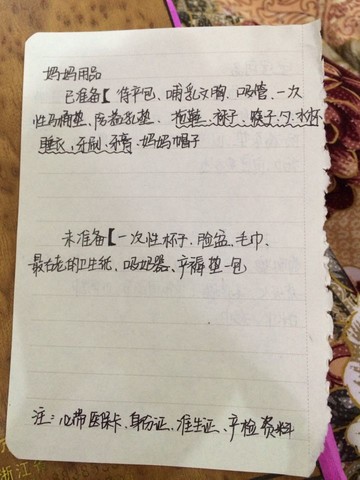 妈妈用品
已准备【待产包、哺乳文胸、吸管、一次
性马桶垫、防溢乳垫、拖鞋、袜子、勺、水杯
睡衣、牙刷、牙膏、妈妈帽子
未准备【一次性杯子、脸盆、毛巾、
最右老的卫生纸、吸奶器、产褥垫一包
注：必带医保卡、身份证、准生证、产检资料
浙江